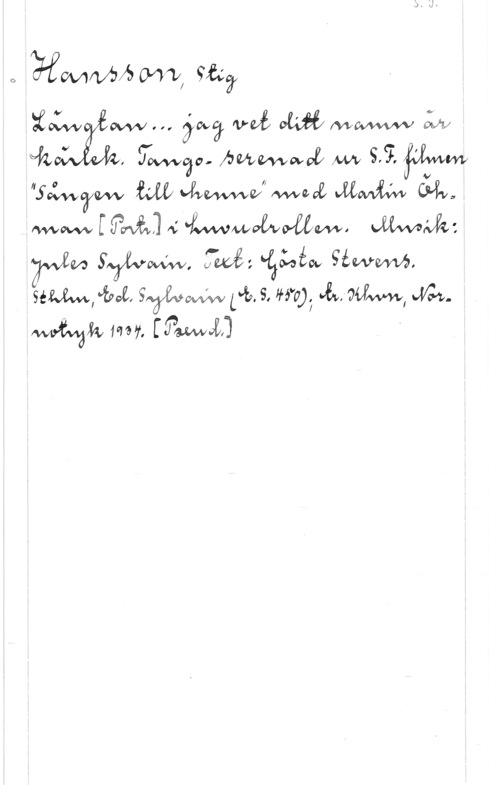 S. J.
Hansson, Stig
Längtan... jag vet ditt namn är
kärlek. Tango-serenad ur S.F. filmen
"Sången till henne" med Martin Öh-
man [Portr.] i huvudrollen. Musik:
Jules Sylvain. Text: Gösta Stevens.
Sthlm, Ed. Sylvain (E. S. 450); tr. Khvn, Nor-
notryk 1934. [Pseud.]